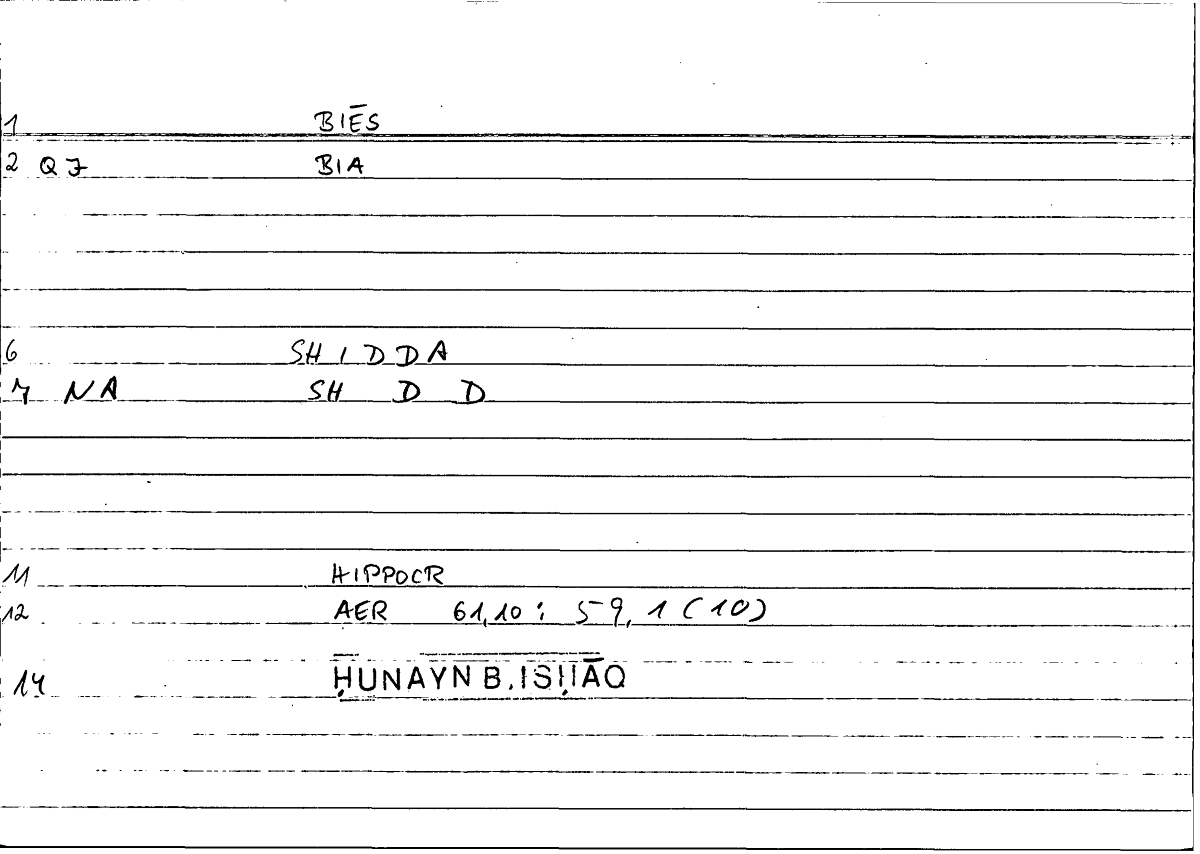 1 BIĒS
2 Q7 BIA
6 SHIDDA
7 NA SH D D
11 HIPPOCR
12 AER 61,10 : 59, 1 (10)
14 ḤUNAYN B. ISḤĀQ